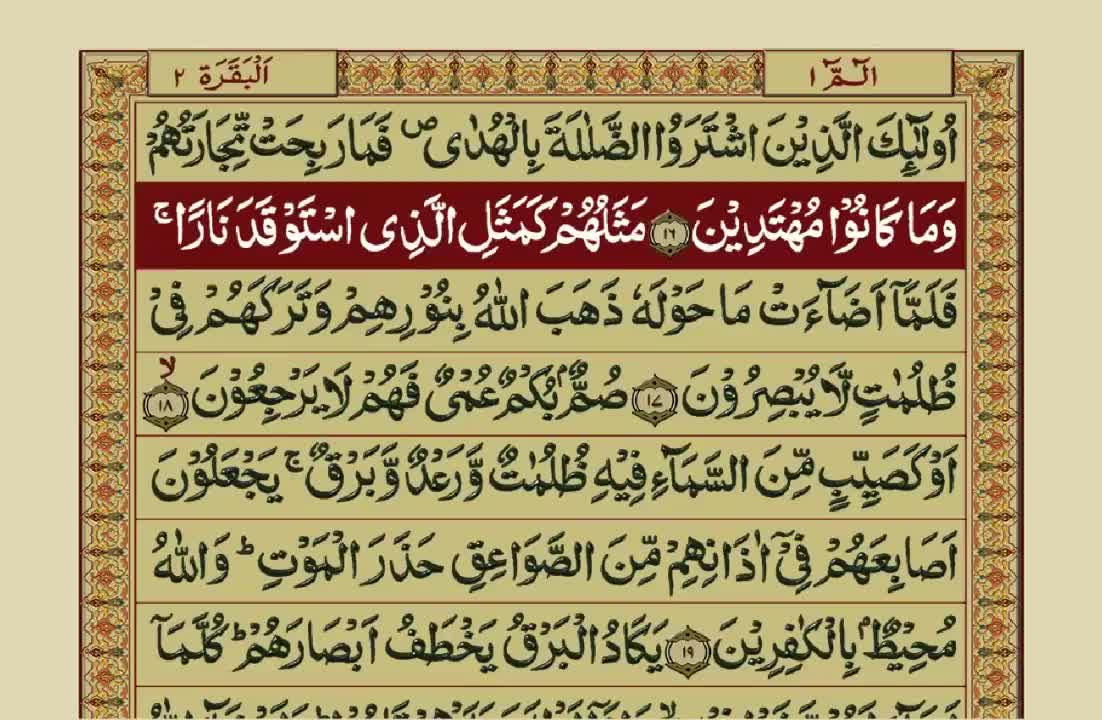 الٓمّٓ ١
اَلْبَقَرَة ٢
اُولٰٓئِكَ الَّذِيْنَ اشْتَرَوُا الضَّلٰلَةَ بِالْهُدٰى ۪ فَمَا رَبِحَتْ تِّجَارَتُهُمْ
وَمَا كَانُوْا مُهْتَدِيْنَ ١٦ مَثَلُهُمْ كَمَثَلِ الَّذِى اسْتَوْقَدَ نَارًا ۚ
فَلَمَّآ اَضَآءَتْ مَا حَوْلَهٗ ذَهَبَ اللّٰهُ بِنُوْرِهِمْ وَتَرَكَهُمْ فِىْ
ظُلُمٰتٍ لَّا يُبْصِرُوْنَ ١٧ صُمٌّۢ بُكْمٌ عُمْىٌ فَهُمْ لَا يَرْجِعُوْنَ ۙ ١٨
اَوْ كَصَيِّبٍ مِّنَ السَّمَآءِ فِيْهِ ظُلُمٰتٌ وَّرَعْدٌ وَّبَرْقٌ ۚ يَجْعَلُوْنَ
اَصَابِعَهُمْ فِىْٓ اٰذَانِهِمْ مِّنَ الصَّوَاعِقِ حَذَرَ الْمَوْتِ ؕ وَاللّٰهُ
مُحِيْطٌۢ بِالْكٰفِرِيْنَ ١٩ يَكَادُ الْبَرْقُ يَخْطَفُ اَبْصَارَهُمْ ؕ كُلَّمَآ